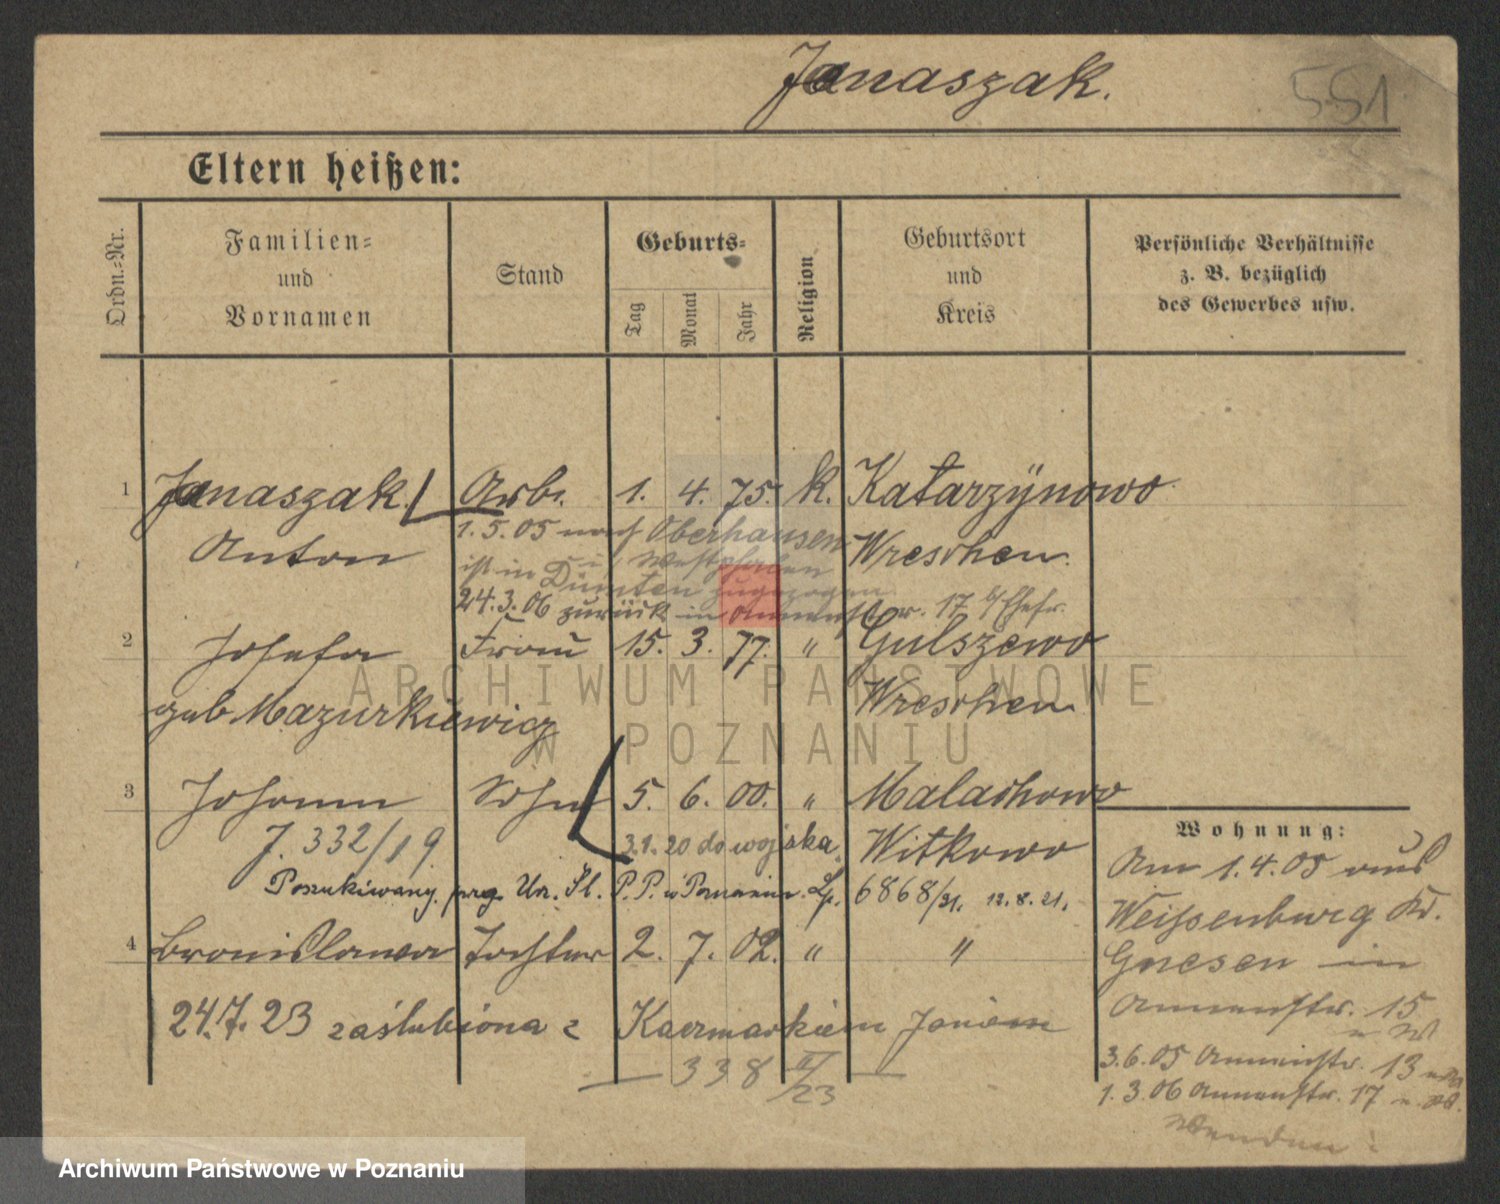 Janaszak.
551
Eltern heißen:
Ordn.-Nr.
Familien-
und
Vornamen
Stand
Geburts-
Tag
Monat
Jahr
Religion
Geburtsort
und
Kreis
Persönliche Verhältnisse
z. B. bezüglich
des Gewerbes usw.
1 Janaszak Arb. 1. 4. 75. k. Katarzÿnowo
Anton
Wreschen
1.5.05 nach Oberhausen
i. Westphalen
ist in Dümten zugezogen
24.3.06 zurück in Annenstr. 17 b/Ehefr.
2 Josefa Frau 15. 3. 77. " Gulszewo
geb Mazurkiewicz
Wreschen
3 Johann Sohn 5. 6. 00. " Malachowo
J. 332/19 3.1.20 do wojska. Witkowo
Poszukiwany prz. Urz. Śl. P.P. w Poznaniu. Lp. 6868/21. 12.8.21.
4 Bronislawa Tochter 2. 7. 02. " "
24.7.23 zaślubiona z Kaczmarkiem Janem
338 II/23
Wohnung:
Am 1.4.05 aus
Weissenburg Kr.
Gnesen in
Annenstr. 15
3.6.05 Annenstr. 13
1.3.06 Annenstr. 17
Wenden
ARCHIWUM PAŃSTWOWE
W POZNANIU
Archiwum Państwowe w Poznaniu